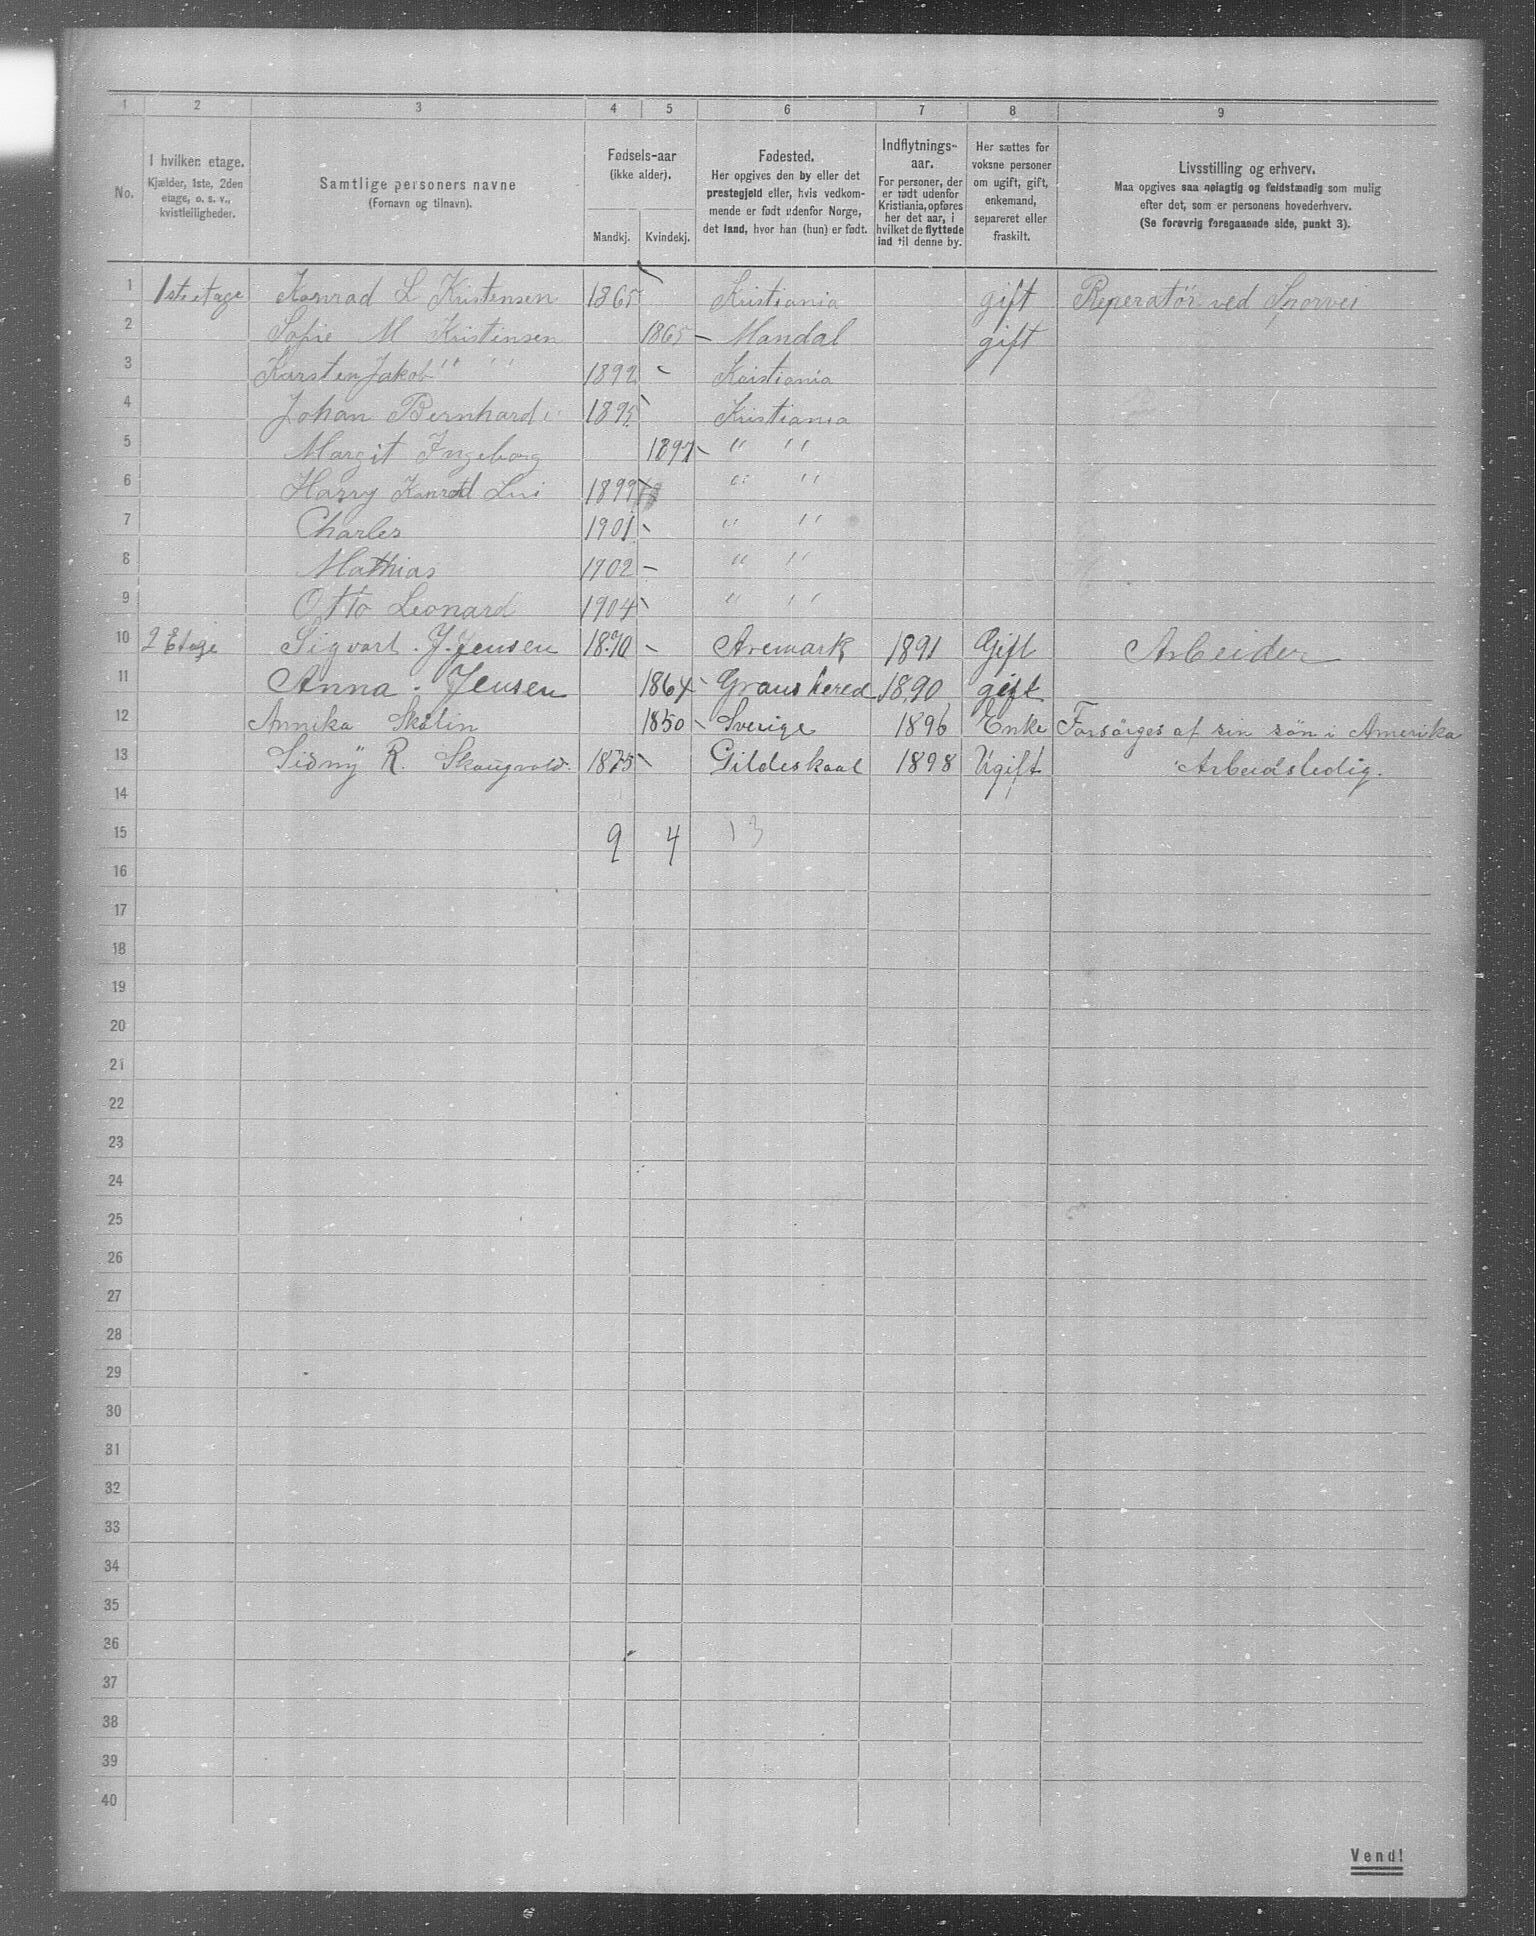 1 2 3 4 5 6 7 8 9
No.
I hvilken etage.
Kjælder, 1ste, 2den
etage, o. s. v.,
kvistleiligheder.
Samtlige personers navne
(Fornavn og tilnavn).
Fødsels-aar
(ikke alder).
Mandkj. Kvindekj.
Fødested.
Her opgives den by eller det
prestegjeld eller, hvis vedkom-
mende er født udenfor Norge,
det land, hvor han (hun) er født.
Indflytnings-
aar.
For personer, der
er født udenfor
Kristiania, opføres
her det aar, i
hvilket de flyttede
ind til denne by.
Her sættes for
voksne personer
om ugift, gift,
enkemand,
separeret eller
fraskilt.
Livsstilling og erhverv.
Maa opgives saa nøiagtig og fuldstændig som mulig
efter det, som er personens hovederhverv.
(Se forøvrig foregaaende side, punkt 3).
1 1ste etage Konrad L Kristensen 1865 Kristiania gift Reperatör ved Sporvei
2 Sofie M Kristensen 1865 – Mandal gift
3 Karsten Jakob " " 1892 Kristiania
4 Johan Bernhard " 1895 Kristiania
5 Margit Ingeborg 1897 " "
6 Harry Konrad 1899 " "
7 Charles 1901 " "
8 Mathias 1902 – " "
9 Otto Leonard 1904 " "
10 2 Etage Sigvart. J. Jensen 1870 – Aremark 1891 Gift Arbeider
11 Anna. Jensen 1864 Gransherred 1890 gift
12 Annika Skölin 1850 Sverige 1896 Enke Forsörges af sin sön i Amerika
13 Sidny R. Skaugvold. 1875 Gildeskaal 1898 Ugift Arbeidsledig.
14
15 9 4 13
16
17
18
19
20
21
22
23
24
25
26
27
28
29
30
31
32
33
34
35
36
37
38
39
40
Vend!